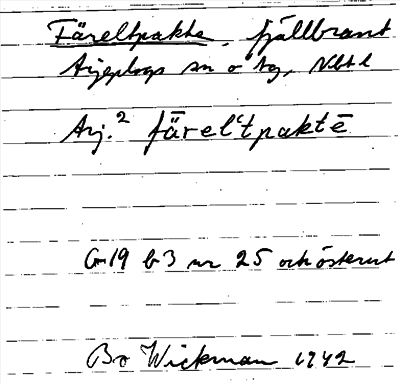 Färeltpakte, fjällbrant
Arjeplogs sn o tg, Nbt l
Arj.² färel't paktē
Gm19 b3 nr 25 och österut
Bo Wickman 1942